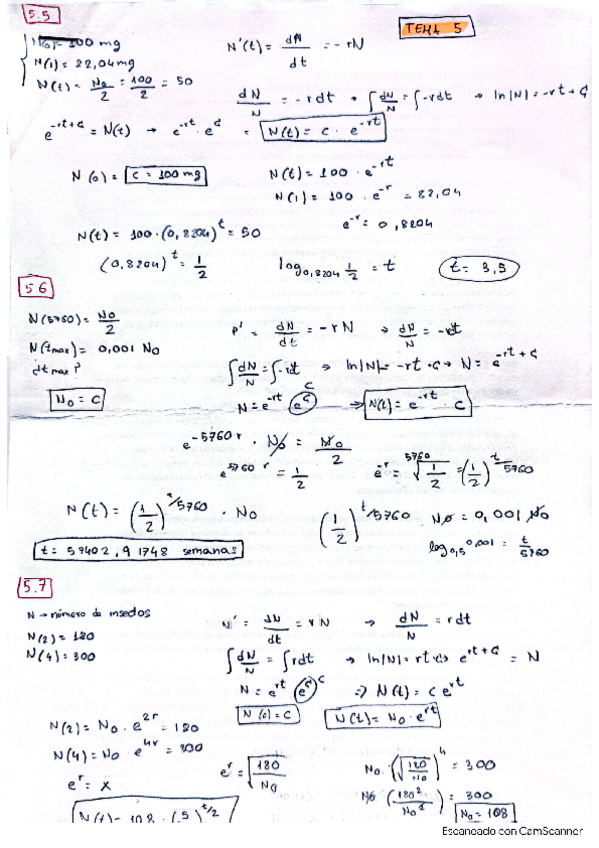 5.5
TEMA 5
N(0) = 100 mg
N(1) = 82,04 mg
N(t) = N₀/2 = 100/2 = 50
N'(t) = dN/dt = -rN
dN/N = -rdt → ∫dN/N = ∫-rdt → ln|N| = -rt + C
e^(-rt+C) = N(t) → e^(-rt) · e^C = N(t) = C · e^(-rt)
N(0) = C = 100 mg
N(t) = 100 · e^(-rt)
N(1) = 100 · e^(-r) = 82,04
e^(-r) = 0,8204
N(t) = 100 · (0,8204)^t = 50
(0,8204)^t = 1/2
log_0,8204 1/2 = t
t = 3,5
5.6
N(5760) = N₀/2
N(t max) = 0,001 N₀
dt max ?
N₀ = C
P' = dN/dt = -rN → dN/N = -rdt
∫dN/N = ∫-rdt → ln|N| = -rt + C → N = e^(-rt+C)
N = e^(-rt) · e^C ⇒ N(t) = e^(-rt) · C
e^(-5760r) · N₀ = N₀/2
e^(5760r) = 1/2
e^(-r) = ⁵⁷⁶⁰√(1/2) = (1/2)^(t/5760)
N(t) = (1/2)^(t/5760) · N₀
(1/2)^(t/5760) N₀ = 0,001 N₀
log_0,5 0,001 = t/5760
t = 57402,91748 semanas
5.7
N → número de insectos
N(2) = 180
N(4) = 300
N' = dN/dt = rN → dN/N = rdt
∫dN/N = ∫rdt → ln|N| = rt + C → e^(rt+C) = N
N = e^(rt) · e^C ⇒ N(t) = C e^(rt)
N(0) = C
N(t) = N₀ · e^(rt)
N(2) = N₀ · e^(2r) = 180
N(4) = N₀ · e^(4r) = 300
e^r = x
e^r = √(180/N₀)
N₀ · (√(180/N₀))^4 = 300
N₀ (180²/N₀²) = 300
N₀ = 108
Escaneado con CamScanner